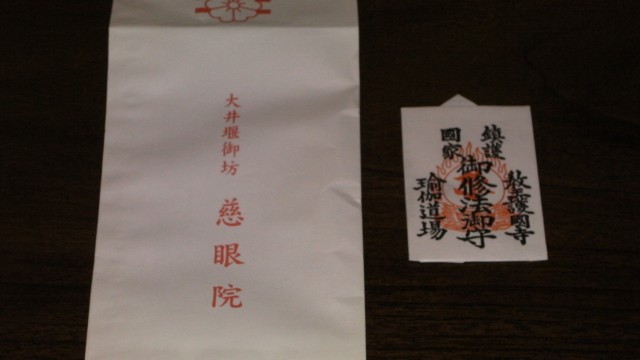 大井堰御坊
慈眼院
鎮護
國家
教王護國寺
御修法御守
瑜伽道場